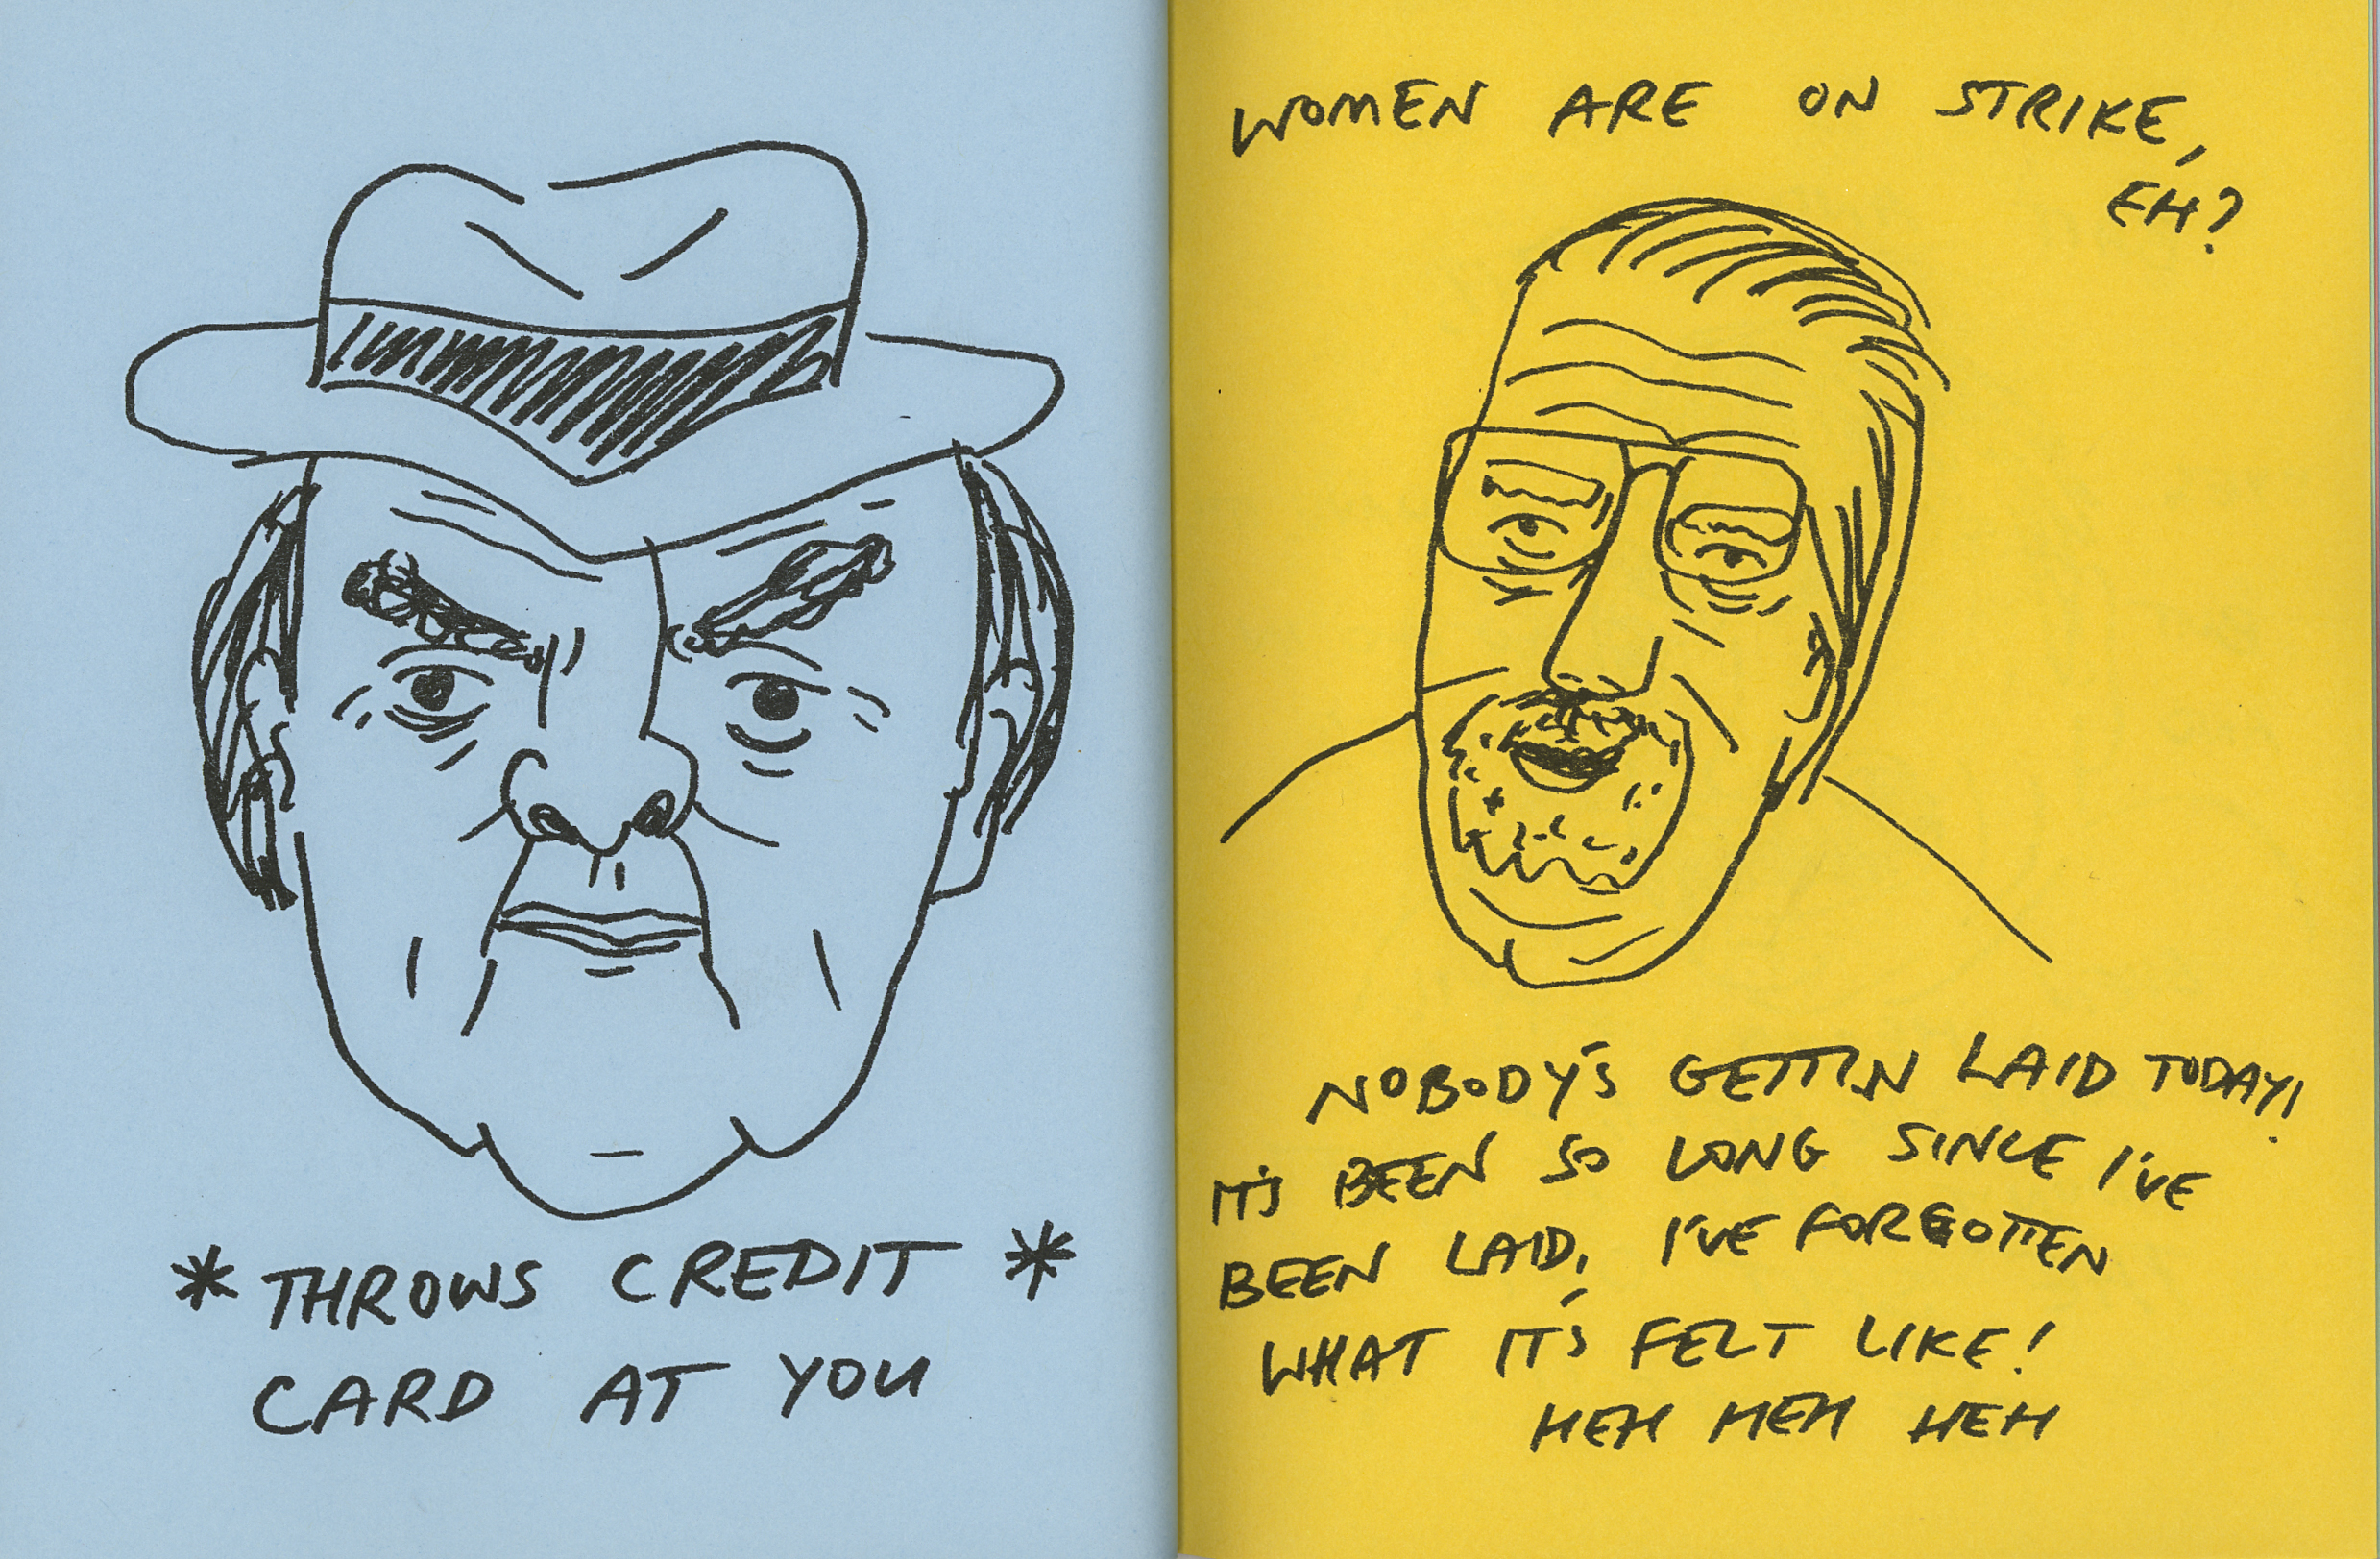 * THROWS CREDIT *
CARD AT YOU
WOMEN ARE ON STRIKE,
EH?
NOBODY'S GETTIN LAID TODAY!
IT'S BEEN SO LONG SINCE I'VE
BEEN LAID, I'VE FORGOTTEN
WHAT IT'S FELT LIKE!
HEH HEH HEH